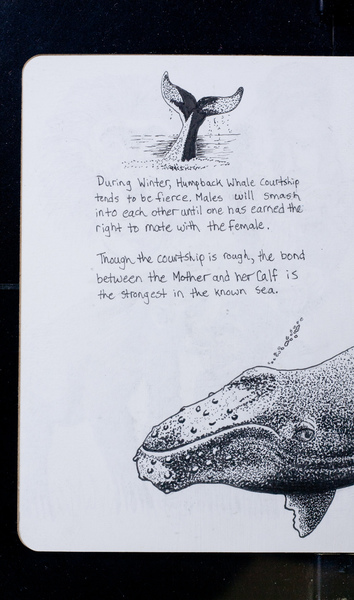 During Winter, Humpback Whale Courtship
tends to be fierce. Males will smash
into each other until one has earned the
right to mate with the Female.
Though the courtship is rough, the bond
between the Mother and her Calf is
the strongest in the known sea.